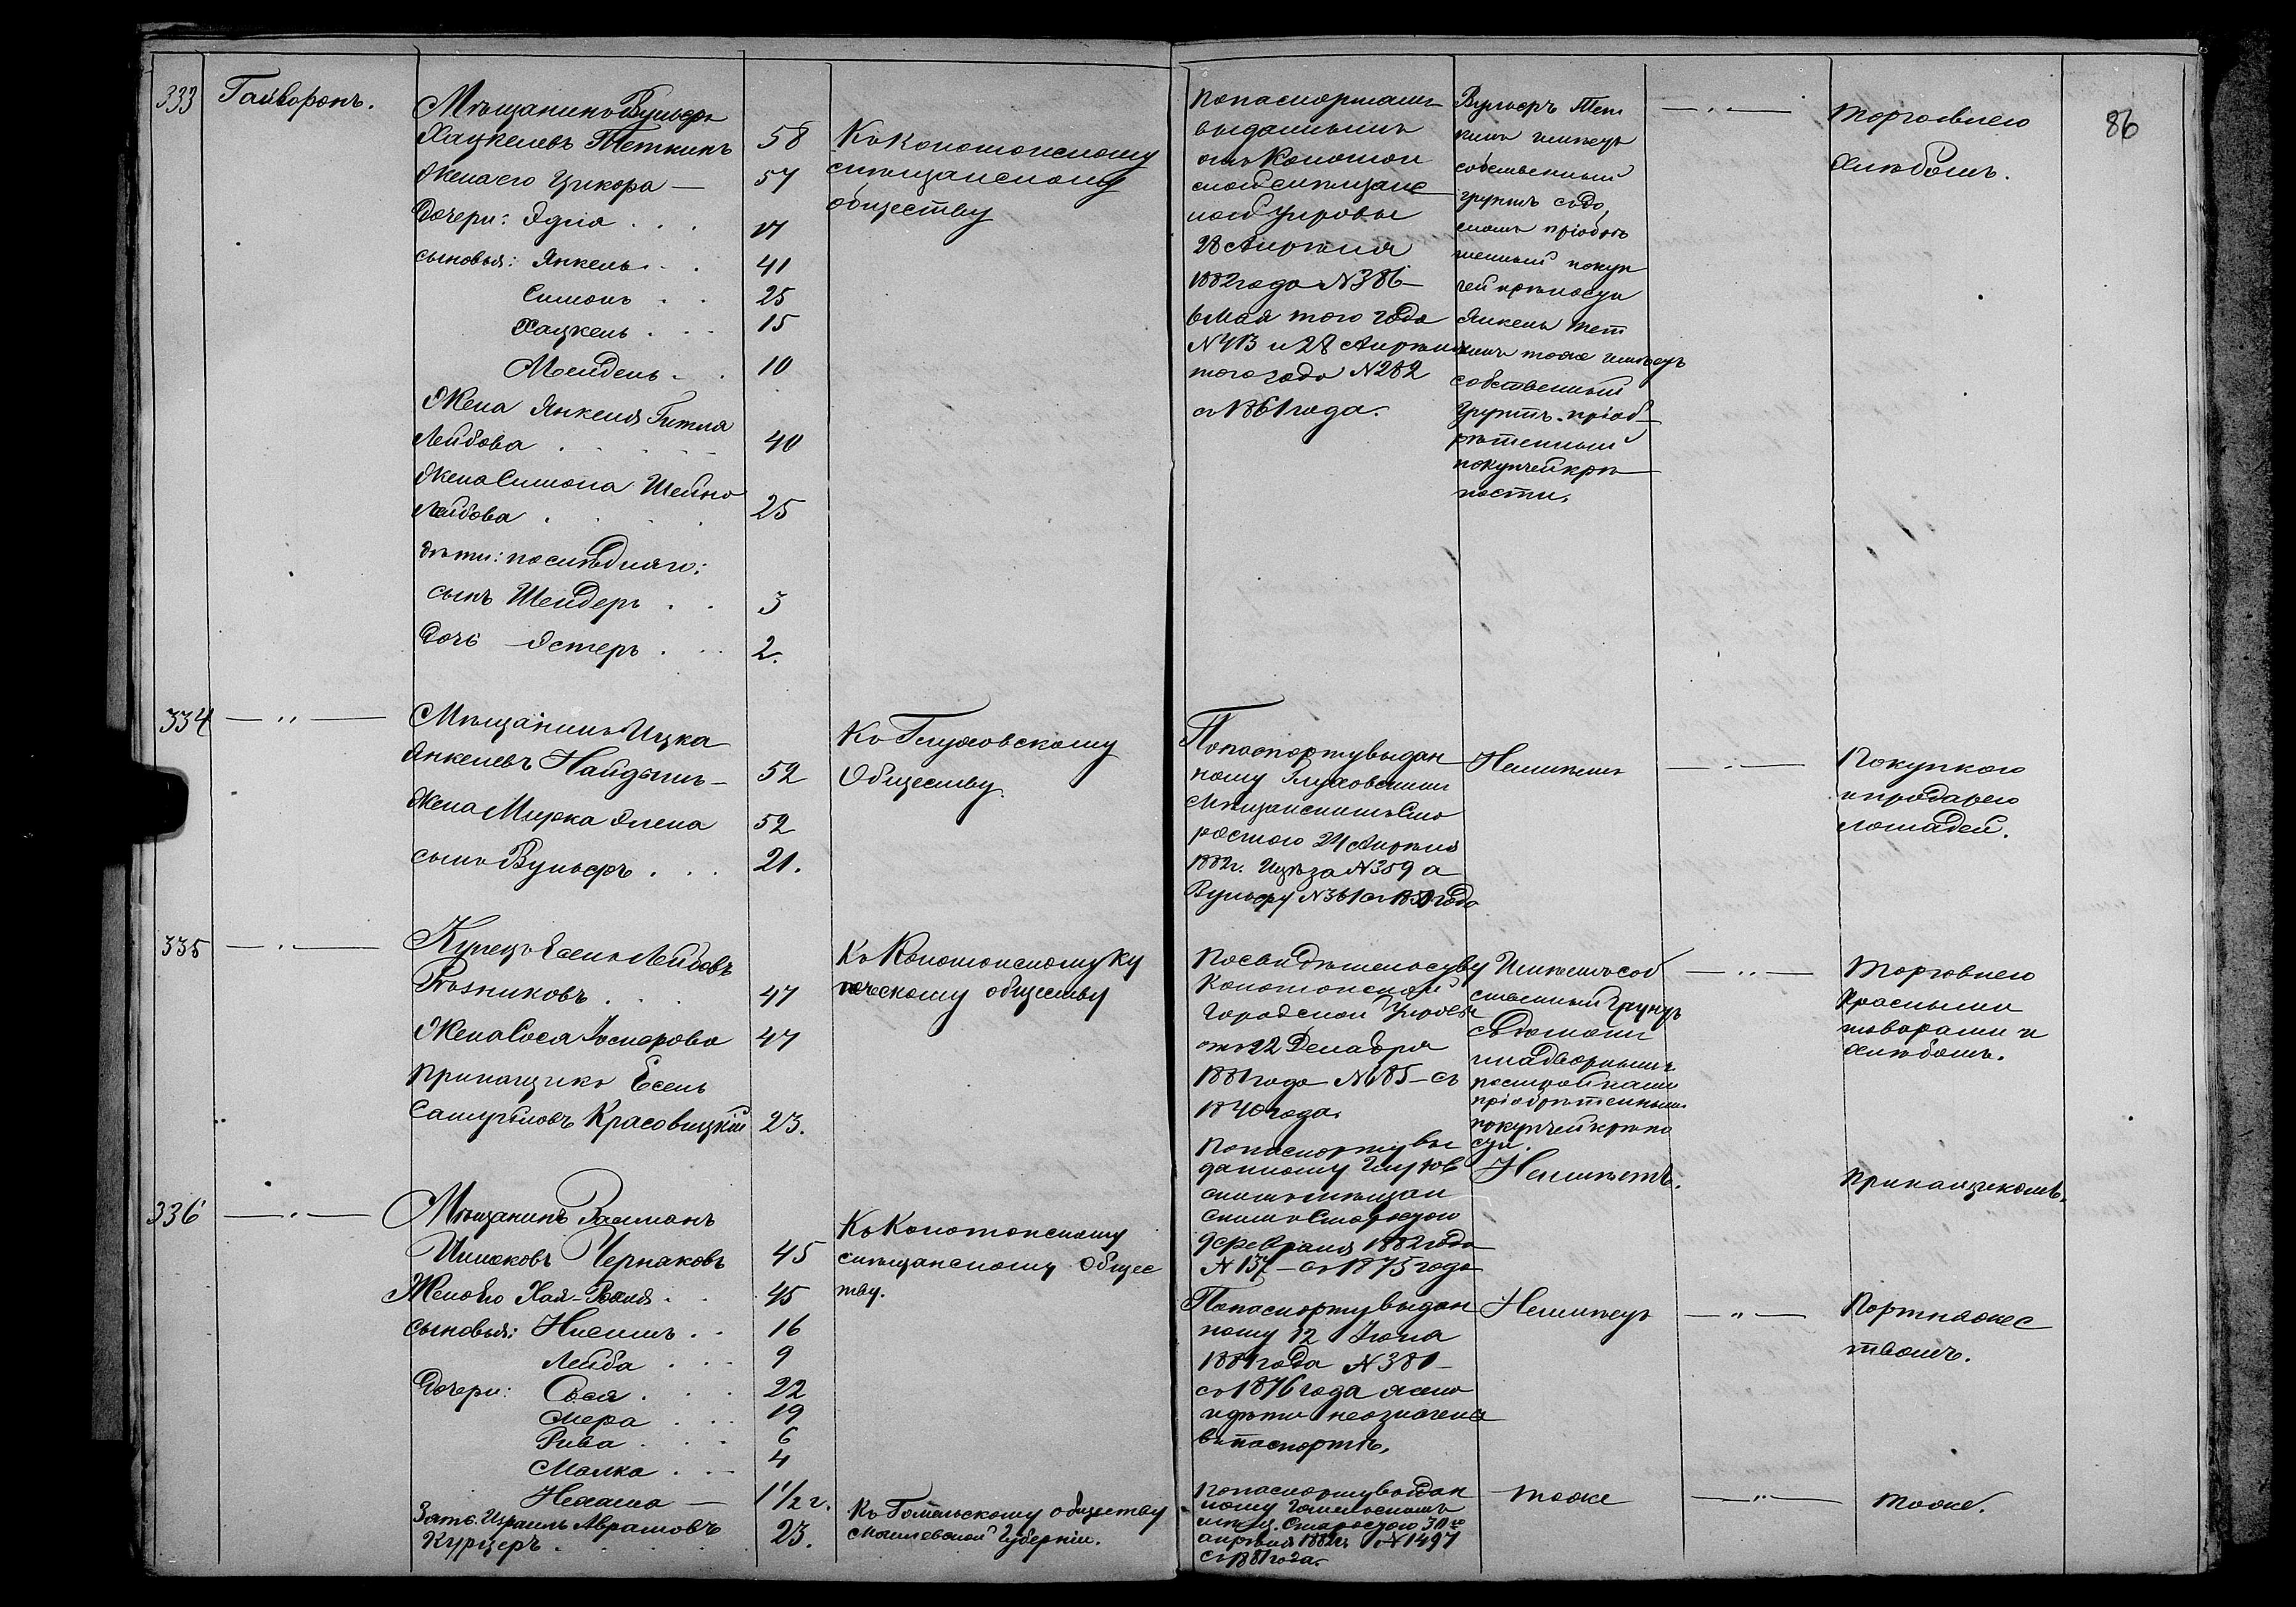 333 Гайворонъ.
Мѣщанинъ Вульфъ
Хацкелевъ Теткинъ 58
Жена его Цикора — 57
Дочери: Эдля . . . 17
сыновья: Янкель . . 41
Симонъ . . 25
Хацкель . . . 15
Мендель . . 10
Жена Янкеля Гитля
Лейбова . . . . . 40
Жена Симона Шейна
Лейбова . . . . 25
дѣти: послѣдняго:
сынъ Шендеръ . . 3
Дочь Эстеръ . . . 2.
Къ Конотопскому
мѣщанскому
обществу
По паспортамъ
выданнымъ
отъ Конотоп
ской мѣщанс
кой управы
28 Апрѣля
1882 года N 386 —
6 Мая того года
N 413 и 28 Апрѣля
того года N 282
съ 1861 года.
Вульфъ Тет
кинъ имѣетъ
собственный
грунтъ съ до
момъ пріобрѣ
тенный купч
ей крѣпости
Янкель Тет
кинъ тоже имѣетъ
собственный
грунтъ пріоб
рѣтенный
по купчей крѣ
пости.
— " —
торговлею
хлѣбомъ.
86
334 — " —
Мѣщанинъ Ицка
Янкелевъ Найдышъ — 52
Жена Мирка Элева 52
сынъ Вульфъ . . . 21.
Къ Глуховскому
Обществу.
По паспорту выдан
ному Глуховскимъ
Мѣщанскимъ Ста
ростою 24 Апрѣля
1882 г. Ицкѣ за N 359 а
Вульфу N 361 съ 1850 года
Неимѣетъ
— " —
Покупкою
и продажею
лошадей.
335 — " —
Купецъ Есель Лейбовъ
Розниковъ . . . 47
Жена Сося Іосифова 47
Прикащикъ Есель
Самуиловъ Красовицкій 23.
Къ Конотопскому ку
печескому обществу
По свидѣтельству
Конотопской
Городской Управы
отъ 22 Декабря
1881 года N 685 — съ
1840 года.
По паспорту вы
данному Глухов
скимъ мѣщан
скимъ Старостою
9 февраля 1882 года
N 137 — съ 1875 года
Имѣетъ соб
ственный грунтъ
съ домомъ
и надворными
постройками
пріобрѣтенными
по купчей крѣпо
сти.
Неимѣетъ.
— " —
торговлею
красными
товарами и
хлѣбомъ.
Прикащикомъ.
336 — " —
Мѣщанинъ Залманъ
Ицковъ Черняковъ 45
Жена его Хая-Роня . . 45
сыновья: Нисимъ . . 16
Лейба . . . 9
Дочери: Сося . . . 22
Мера . . . 19
Рива . . . 6
Малка . . . 4
Нехама — 1 1/2 г.
Зять Израиль Абрамовъ
Курцеръ . . . 23.
Къ Конотопскому
мѣщанскому общес
тву.
Къ Гомельскому обществу
Могилевской Губерніи.
По паспорту выдан
ному 12 Іюня
1881 года N 380 —
съ 1876 года жена
и дѣти неозначены
въ паспортѣ.
По паспорту выдан
ному Гомельскимъ
мѣщ. Старостою 30 го
апрѣля 1882 г. N 1497
съ 1881 года.
Неимѣетъ
— " —
Портняжес
твомъ.
тоже
— " —
тоже.